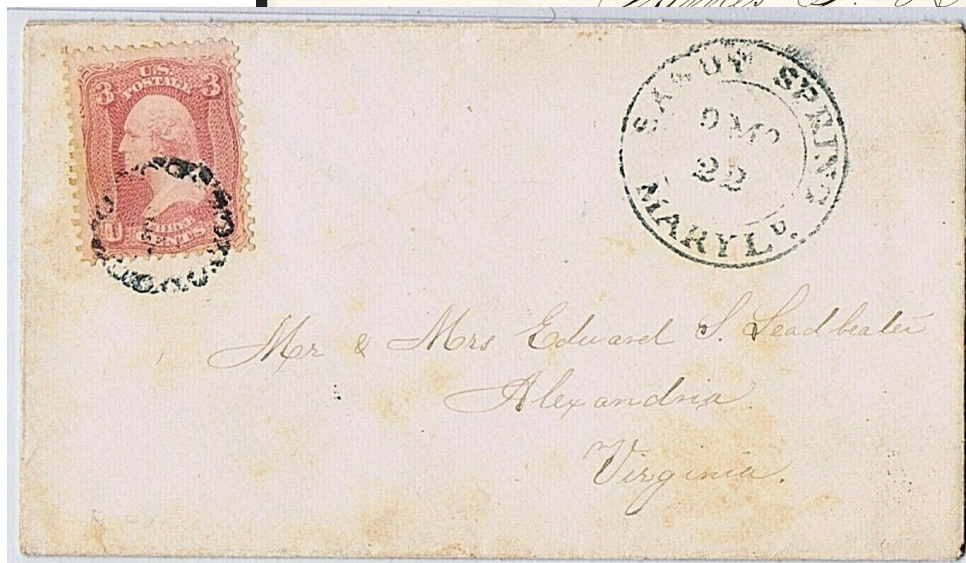 U.S.
POSTAGE
3 3
THREE
CENTS
SANDY SPRING
9 Mo
22
MARYLD.
Mr & Mrs Edward S. Leadbeater
Alexandria
Virginia.